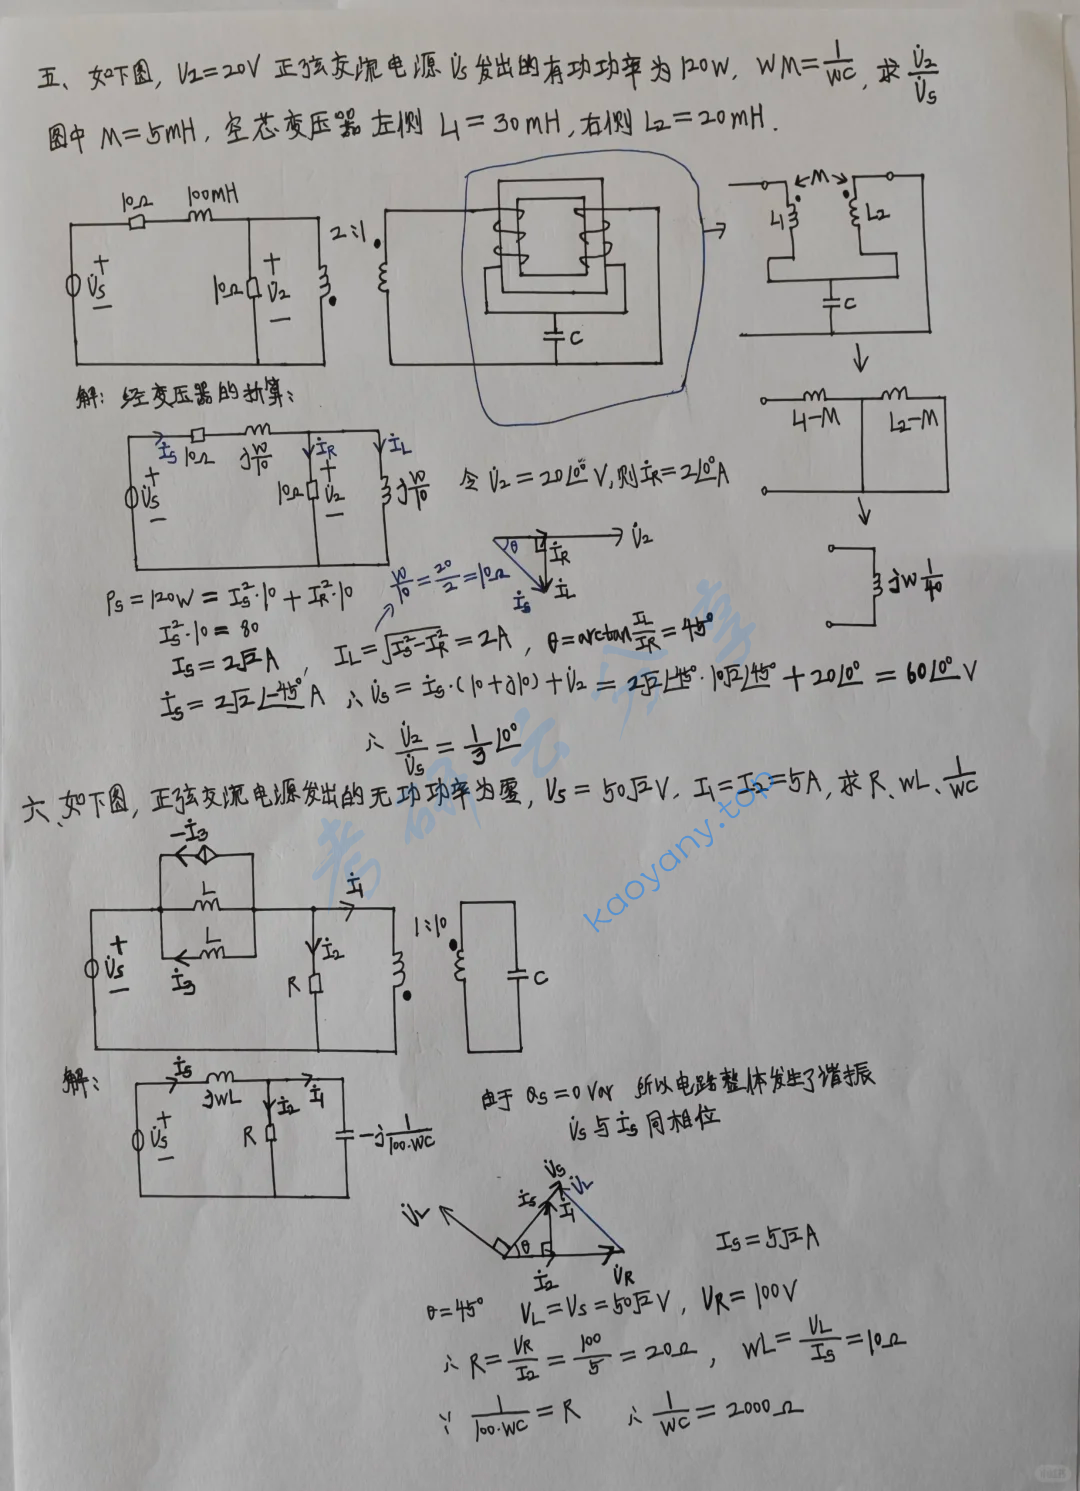 五、如下图, U2=20V 正弦交流电源 U̇s发出的有功功率为120W, WM=1/WC, 求 U̇2/U̇s
图中 M=5mH, 空芯变压器左侧 L1=30mH, 右侧 L2=20mH.
10Ω 100mH
+ U̇s −
10Ω + U̇2 −
2:1
C
←M→
L1 L2
C
L1-M L2-M
jW 1/40
解: 经变压器的折算:
İs 10Ω jW/10 İR İL
+ U̇s − 10Ω + U̇2 − jW/10
令 U̇2=20∠0° V, 则 İR=2∠0° A
θ İR U̇2
İs İL
Ps=120W=Is²·10+IR²·10
W/10=20/2=10Ω
Is²·10=80
Is=2√2 A, IL=√(Is²-IR²)=2A, θ=arctan IL/IR=45°
İs=2√2∠-45° A ∴ U̇s=İs·(10+j10)+U̇2=2√2∠-45°·10√2∠45°+20∠0°=60∠0° V
∴ U̇2/U̇s=1/3∠0°
考研云分享
kaoyany.top
六、如下图, 正弦交流电源发出的无功功率为零, Us=50√2V, I1=I2=5A, 求R、WL、1/WC
-İ3
L
L
İ3
İ1
+ U̇s −
İ2
R
1:10
C
解:
İs jWL İ2 İ1
+ U̇s − R -j 1/100·WC
由于 Qs=0 Var 所以电路整体发生了谐振
U̇s与İs同相位
U̇L İs U̇s U̇L İ1
θ İ2 U̇R
Is=5√2A
θ=45° UL=Us=50√2V, UR=100V
∴ R=UR/I2=100/5=20Ω, WL=UL/Is=10Ω
∵ 1/100·WC=R ∴ 1/WC=2000Ω